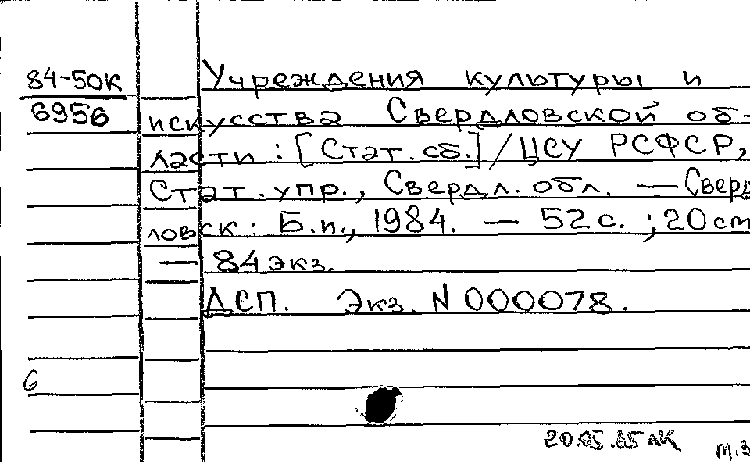 84-50К
6956
Учреждения культуры и
искусства Свердловской об-
ласти : [Стат. сб.] / ЦСУ РСФСР,
Стат. упр., Свердл. обл. — Сверд
ловск : Б.и., 1984. — 52 с. ; 20 см
— 84 экз.
ДСП. Экз. N 000078.
6